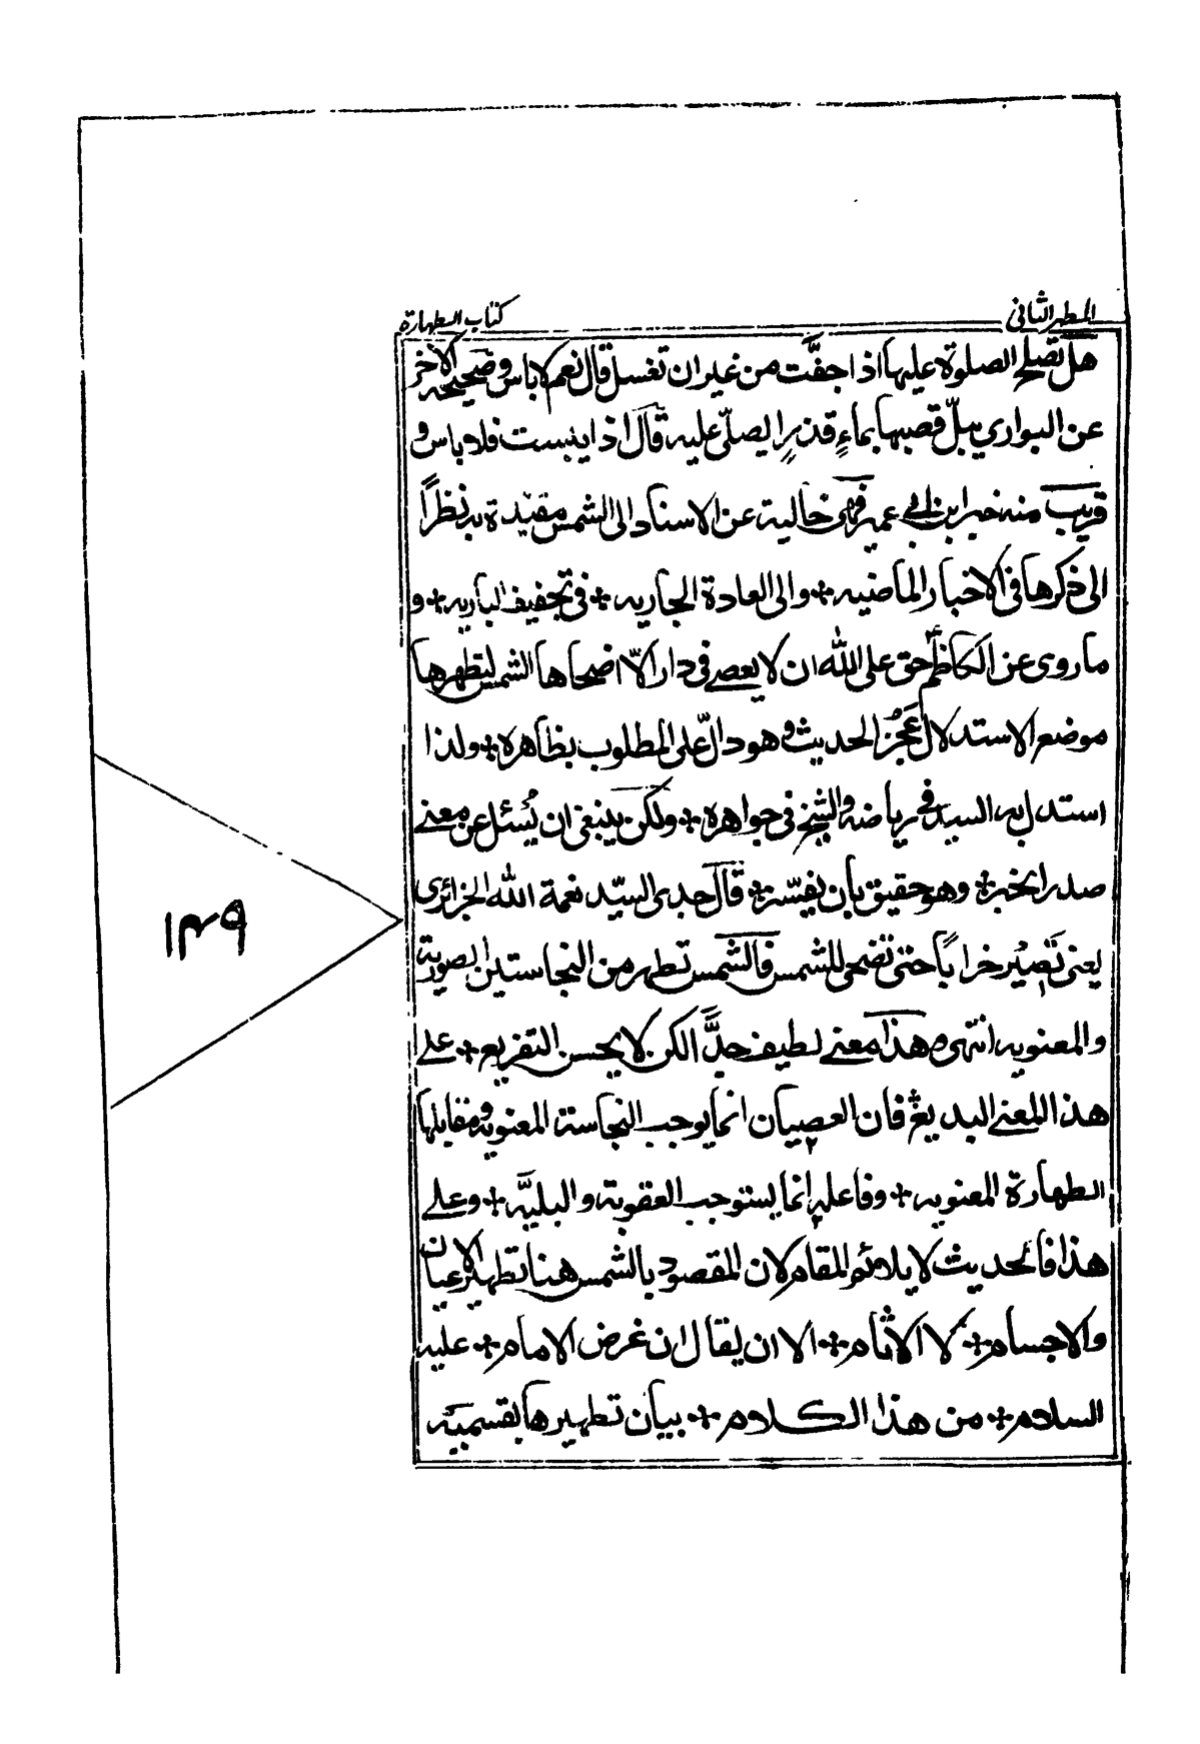 المطهر الثانى
كتاب الطهارة
هل تصلح الصلوة عليها اذا جفّت من غير ان تغسل قال نعم لا باس وصحيحه الآخر
عن البوارى يبلّ قصبها بماءٍ قذرٍ ايصلّى عليه قال اذا يبست فلا باس و
قريب منه خبر ابن ابى عمير فهى خالية عن الاسناد الى الشمس مقيّدة به نظراً
الى ذكرها فى الاخبار الماضيه ؞ والى العادة الجاريه ؞ فى تجفيف الباريه ؞ و
ما روى عن الكاظم حق على الله ان لا يعصى فى دار الّا اضحاها الشمس لتطهرها
موضع الاستدلال عَجُز الحديث و هو دالّ على المطلوب بظاهره ؞ ولذا
استدل به السيد فى رياضه والشيخ فى جواهره ؞ ولكن ينبغى ان يُسئل عن معنى
صدر الخبر ؞ وهو حقيق بان يفسّر ؞ قال جدى السيّد نعمة الله الجزائرى
يعنى تَصِيْر خراباً حتى تضحى للشمس فالشمس تطهر من النجاستين الصورية
والمعنويه انتهى وهذا معنى لطيف جدًّا لكن لا يحسن التفريع ؞ على
هذا المعنى البديع فان العصيان انما يوجب النجاسة المعنويه ومقابلها
الطهارة المعنويه ؞ وفاعله انما يستوجب العقوبة والبليّه ؞ وعلى
هذا فالحديث لا يلائم المقام لان المقصود بالشمس هنا تطهير الاعيان
والاجسام ؞ لا الآثام ؞ الا ان يقال ان غرض الامام ؞ عليه
السلام ؞ من هذا الكلام ؞ بيان تطهيرها بقسميه
۱۴۹